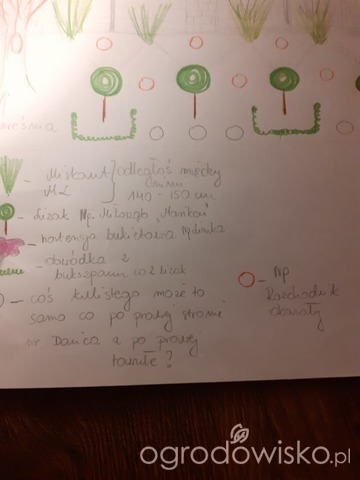 wreśnia
- Miskant } odległość między
ML nimi
140 - 150 cm
- lizak Np. Miłorząb "Mariken"
- hortensja bukietowa
- obwódka z
bukszpanu co 2 lizak
- coś kulistego może to
samo co po prawej stronie
np. Danica a po prawej
towułe?
- Np
Rozchodnik
okazały
ogrodowisko.pl